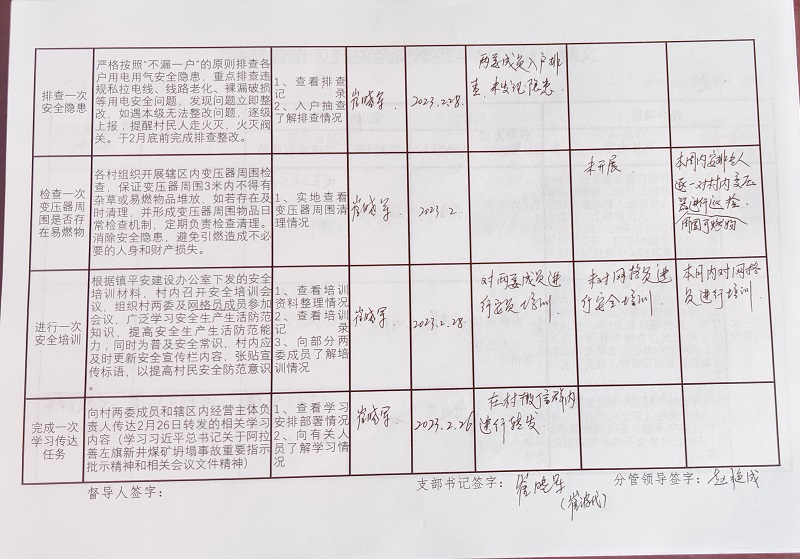 排查一次
安全隐患
严格按照“不漏一户”的原则排查各
户用电用气安全隐患，重点排查违
规私拉电线、线路老化、裸漏破损
等用电安全问题，发现问题立即整
改，如遇本级无法整改问题，逐级
上报；提醒村民人走火灭，火灭阀
关。于2月底前完成排查整改。
1、查看排查
记录
2、入户抽查
了解排查情况
2023.2.28.
两委成员入户排
查，未发现隐患.
检查一次
变压器周
围是否存
在易燃物
各村组织开展辖区内变压器周围检
查，保证变压器周围3米内不得有
杂草或易燃物品堆放，如若存在及
时清理，并形成变压器周围物品日
常检查机制，定期负责检查清理。
消除安全隐患，避免引燃造成不必
要的人身和财产损失。
1、实地查看
变压器周围清
理情况
2023.2.
未开展.
本周内安排专人
逐一对村内变压
器进行巡检.
进行一次
安全培训
根据镇平安建设办公室下发的安全
培训材料，村内召开安全培训会
议，组织村两委及网格员成员参加
会议，广泛学习安全生产生活防范
知识，提高安全生产生活防范能
力；同时为普及安全常识，村内应
及时更新安全宣传栏内容，张贴宣
传标语，以提高村民安全防范意识
。
1、查看培训
资料整理情况
2、查看培训
记录
3、向部分两
委成员了解培
训情况
2023.2.28.
对两委成员进
行安全培训.
未对网格员进
行安全培训.
本月内对网格
员进行培训.
完成一次
学习传达
任务
向村两委成员和辖区内经营主体负
责人传达2月26日转发的相关学习
内容（学习习近平总书记关于阿拉
善左旗新井煤矿坍塌事故重要指示
批示精神和相关会议文件精神）
1、查看学习
安排部署情况
2、向有关人
员了解学习情
况
2023.2.26
在村微信群内
进行转发
督导人签字：
支部书记签字：
分管领导签字：